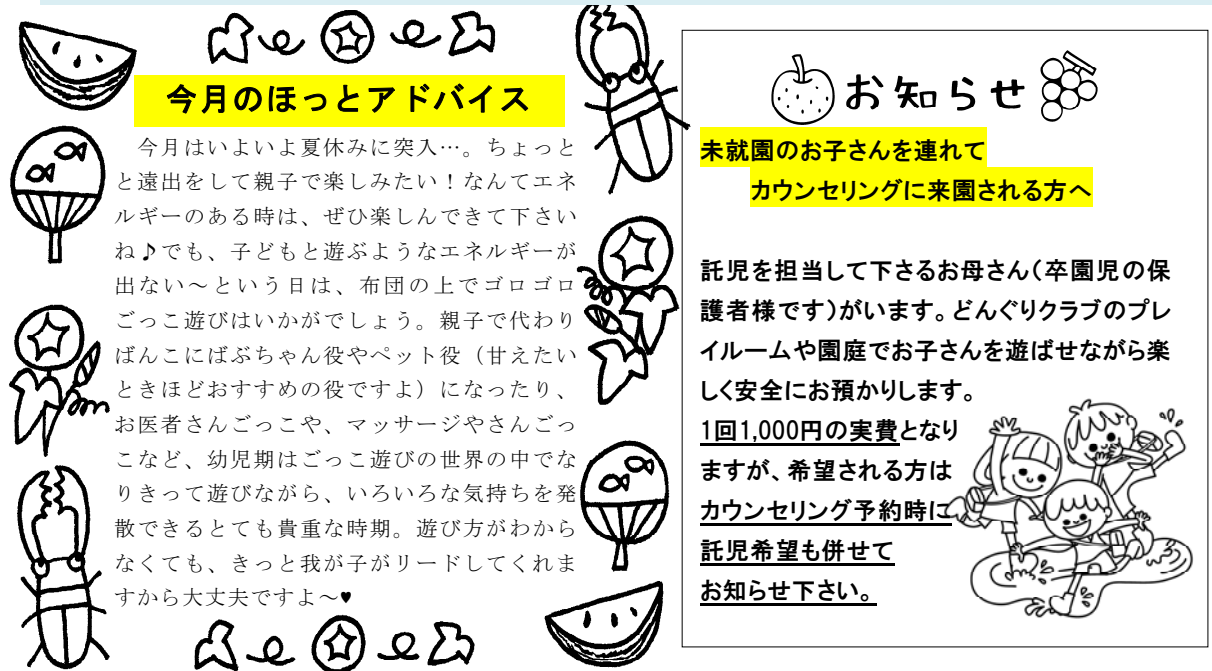 今月のほっとアドバイス
今月はいよいよ夏休みに突入…。ちょっと
と遠出をして親子で楽しみたい！なんてエネ
ルギーのある時は、ぜひ楽しんできて下さい
ね♪でも、子どもと遊ぶようなエネルギーが
出ない～という日は、布団の上でゴロゴロ
ごっこ遊びはいかがでしょう。親子で代わり
ばんこにばぶちゃん役やペット役（甘えたい
ときほどおすすめの役ですよ）になったり、
お医者さんごっこや、マッサージやさんごっ
こなど、幼児期はごっこ遊びの世界の中でな
りきって遊びながら、いろいろな気持ちを発
散できるとても貴重な時期。遊び方がわから
なくても、きっと我が子がリードしてくれま
すから大丈夫ですよ～♥
お知らせ
未就園のお子さんを連れて
カウンセリングに来園される方へ
託児を担当して下さるお母さん（卒園児の保
護者様です）がいます。どんぐりクラブのプレ
イルームや園庭でお子さんを遊ばせながら楽
しく安全にお預かりします。
1回1,000円の実費となり
ますが、希望される方は
カウンセリング予約時に
託児希望も併せて
お知らせ下さい。